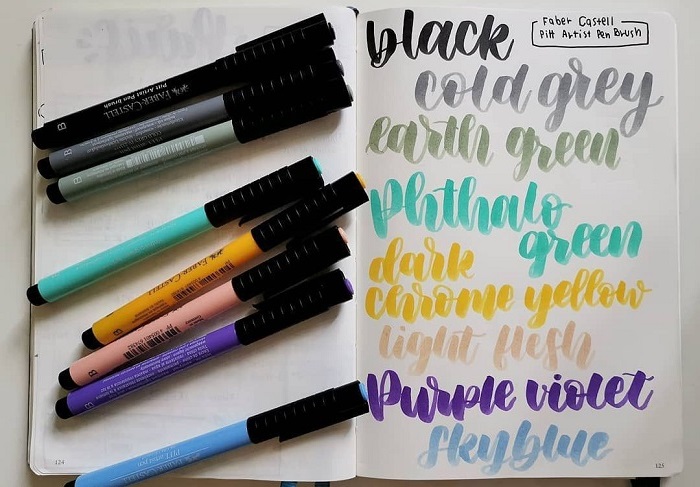 Pitt Artist Pen brush
FABER-CASTELL
B
B
B
FABER-CASTELL
B
B
B
PITT artist pen
124
Faber Castell
Pitt Artist Pen Brush
black
cold grey
earth green
Phthalo
green
dark
chrome yellow
light flesh
Purple violet
skyblue
125